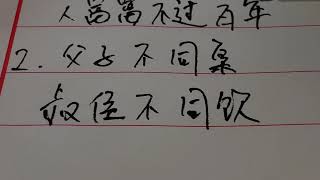 人富富不过百年
2.父子不同桌
叔侄不同饮